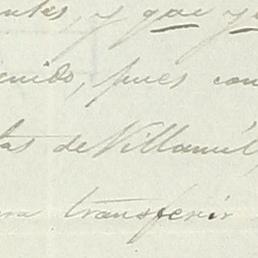 ntes, y que y
enido, pues con
tas de Villamil,
ra transferir